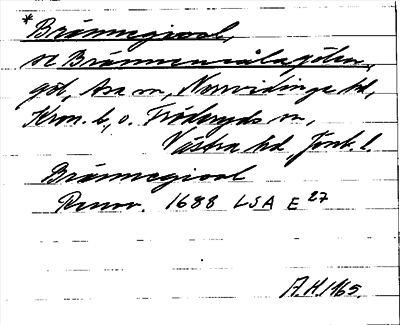 *Brännegiööl,
se Brännemåla göten,
göl, Asa sn, Norrvidinge hd,
Kron. l., o. Fröderyds sn,
Västra hd, Jönk. l.
Brännegiööl
Renov. 1688 LSA E 27
A.H. 165.